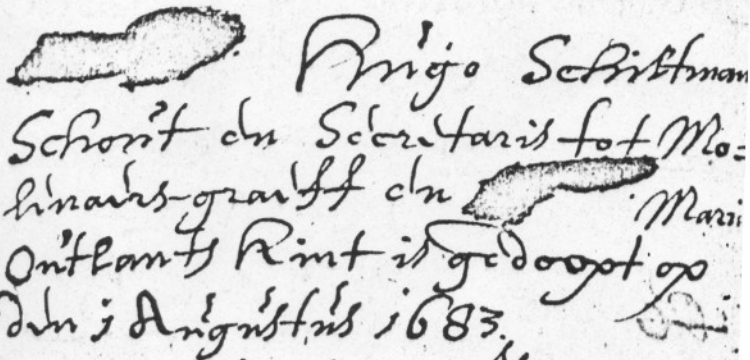 Hugo Schiltman
Schout en Secretaris tot Mo=
linairs-graeff en Mari
Outlants Kint is gedoopt op
den 1 Augustus 1683.